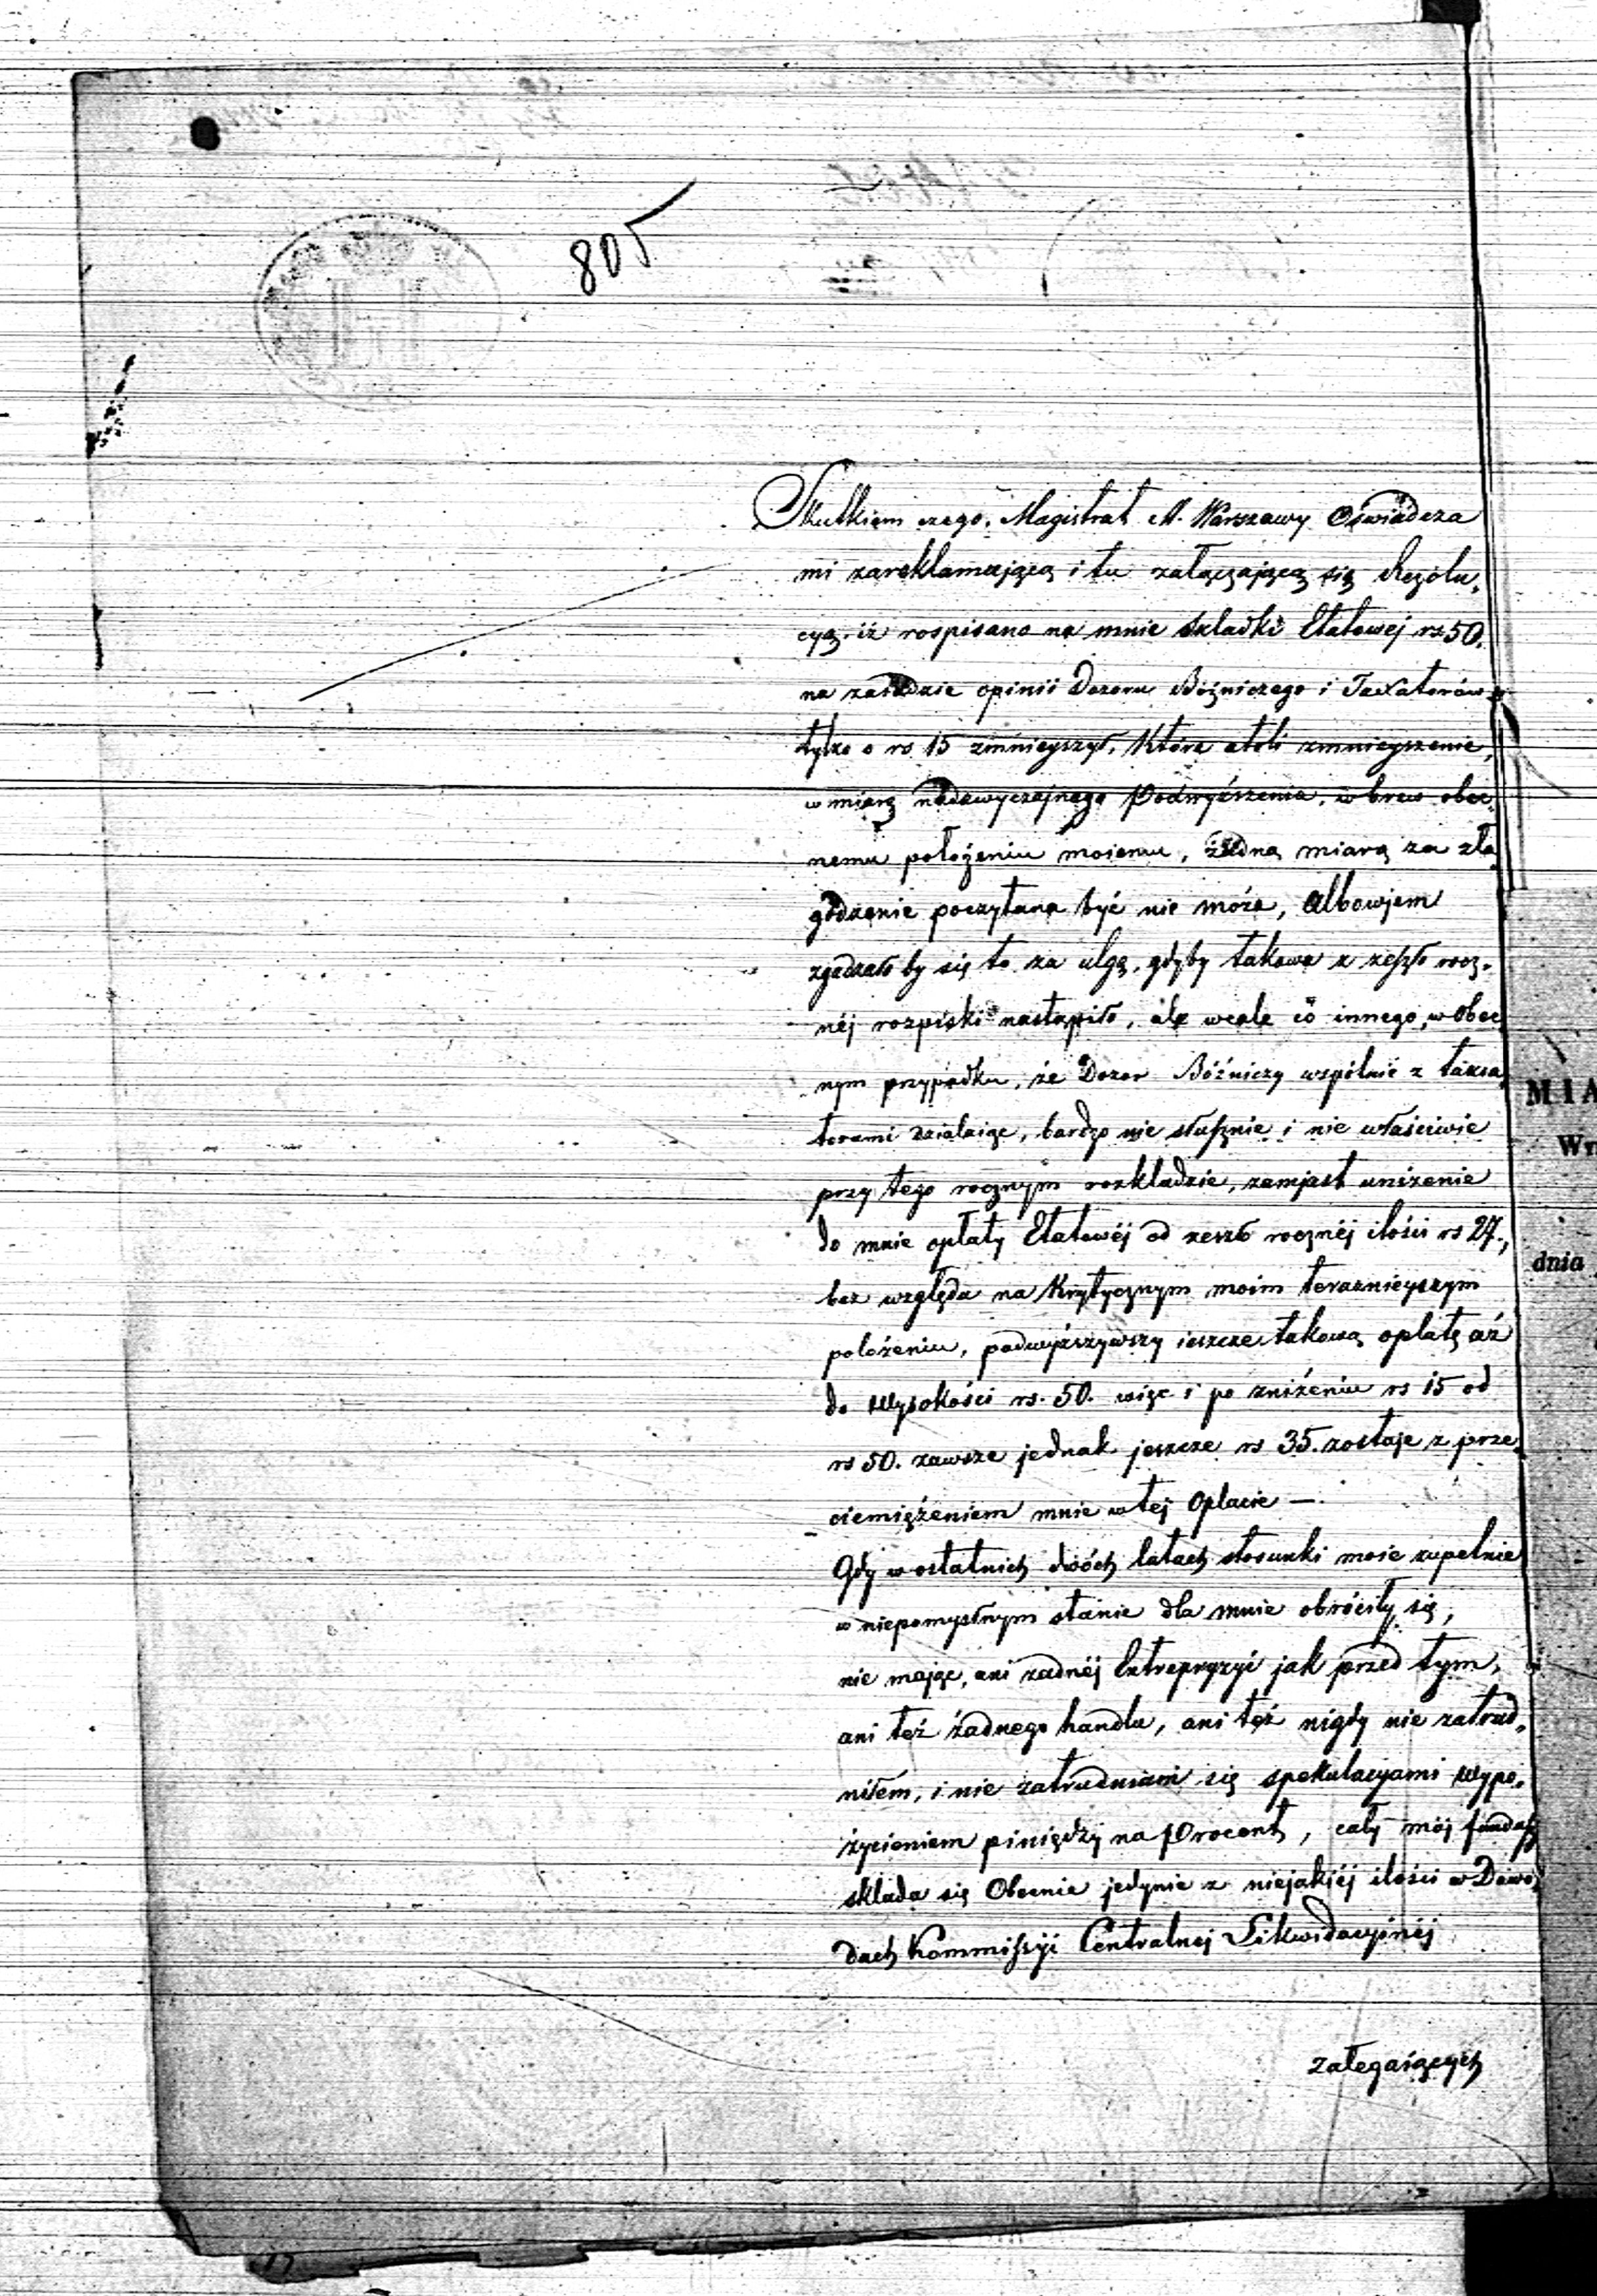 805
Skutkiem czego, Magistrat M. Warszawy Oświadcza
mi zareklamującą i tu załączającą się Rezolu,
cyą. iż rospisano na mnie składki Etatowej rs 50.
na zasadzie opinii Dozoru Bóżniczego i Taxatorów
tylko o rs 15 zmnieyszył. Które atoli zmnieyszenie,
w miarę nadzwyczajnego Podwyższenia, w brew obec,
nemu położeniu moiemu, żadną miarą za zła
godzenie poczytane być nie może, albowjem
zgadzało by się to za ulgę, gdyby takowe z zeszło rocz,
néj rozpiski nastąpiło, ale wcale co innego, w obec
nym przypadku, że Dozor Bóżniczy wspólnie z taxa
torami działaiąc, bardzo nie słusznie i nie właściwie
przy tego rocznym rozkładzie, zamjast uniżenie
do mnie opłaty Etatowéj od zeszło rocznéj ilości rs 27.,
bez względa na Krytycznym moim teraznieyszym
położeniu, podwyższywszy ieszcze takową opłatę aż
do Wysokości rs. 50. więc i po zniżeniu rs 15 od
rs 50. zawsze jednak jeszcze rs 35. zostaje z prze,
ciemiężeniem mnie w tej Opłacie —.
Gdy w ostatnich dwóch latach stosunki moie zupełnie
w niepomyślnym stanie dla mnie obróciły się,
nie mając, ani żadnéj Entrepryzyi jak przed tym,
ani też żadnego handlu, ani też nigdy nie zatrud,
niłem, i nie zatrudniam się spekulacyami wypo,
życieniem piniędzy na Procent, cały mój fundusz
składa się Obecnie jedynie z niejakiéj ilości w Dowo,
dach Kommissyi Centralnej Likwidacyjnéj
zalegaiących
MIA
dnia